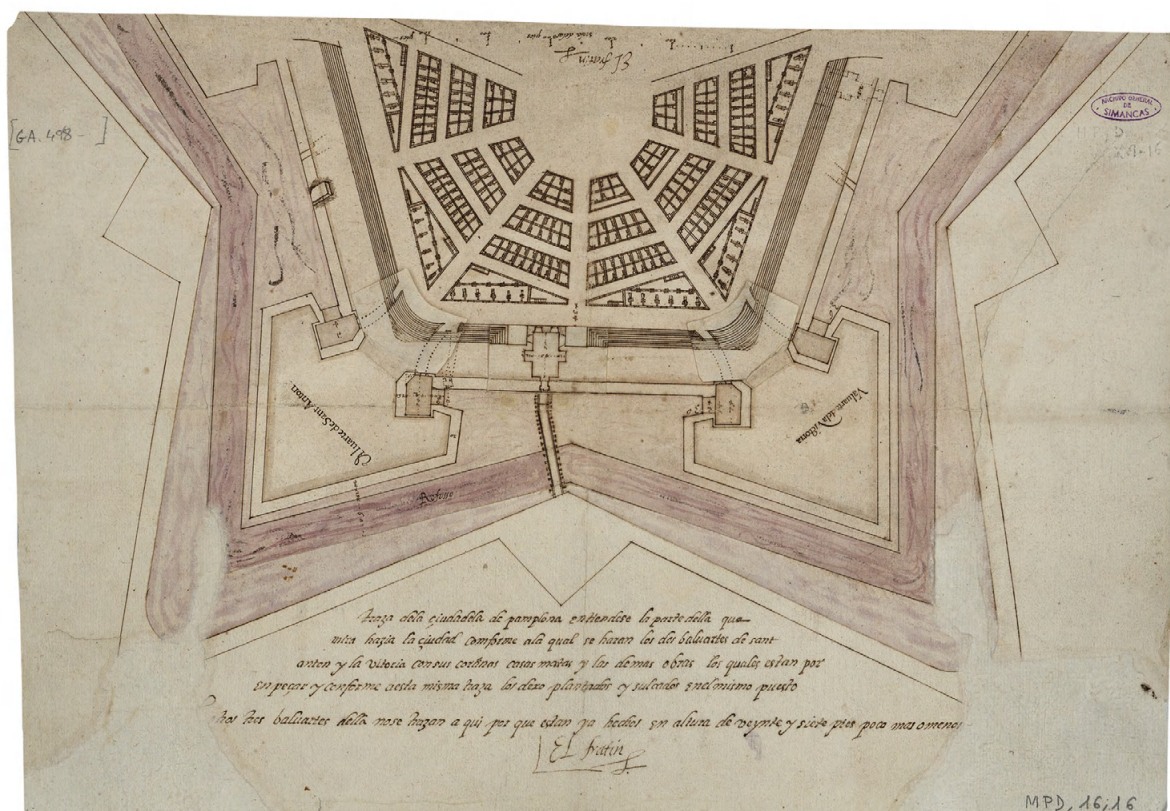 El fratin
[GA. 498- ]
ARCHIVO GENERAL
DE
SIMANCAS
Valuarte de Sant Anton
Valuarte dela Vistoria
El foso
traza dela ciudadela de pamplona entiendese la parte della que
mira hazia la ciudad comforme ala qual se hazen los dos baluartes de sant
anton y la vitoria con sus cortinas casas matas y las demas obras los quales estan por
enpeçar y conforme aesta misma traza los dexo plantados y sulcados enel mismo puesto
tros tres baluartes della nose trazan a qui por que estan ya hechos en altura de veynte y siete pies poco mas omenos
El fratin
MPD, 16, 16